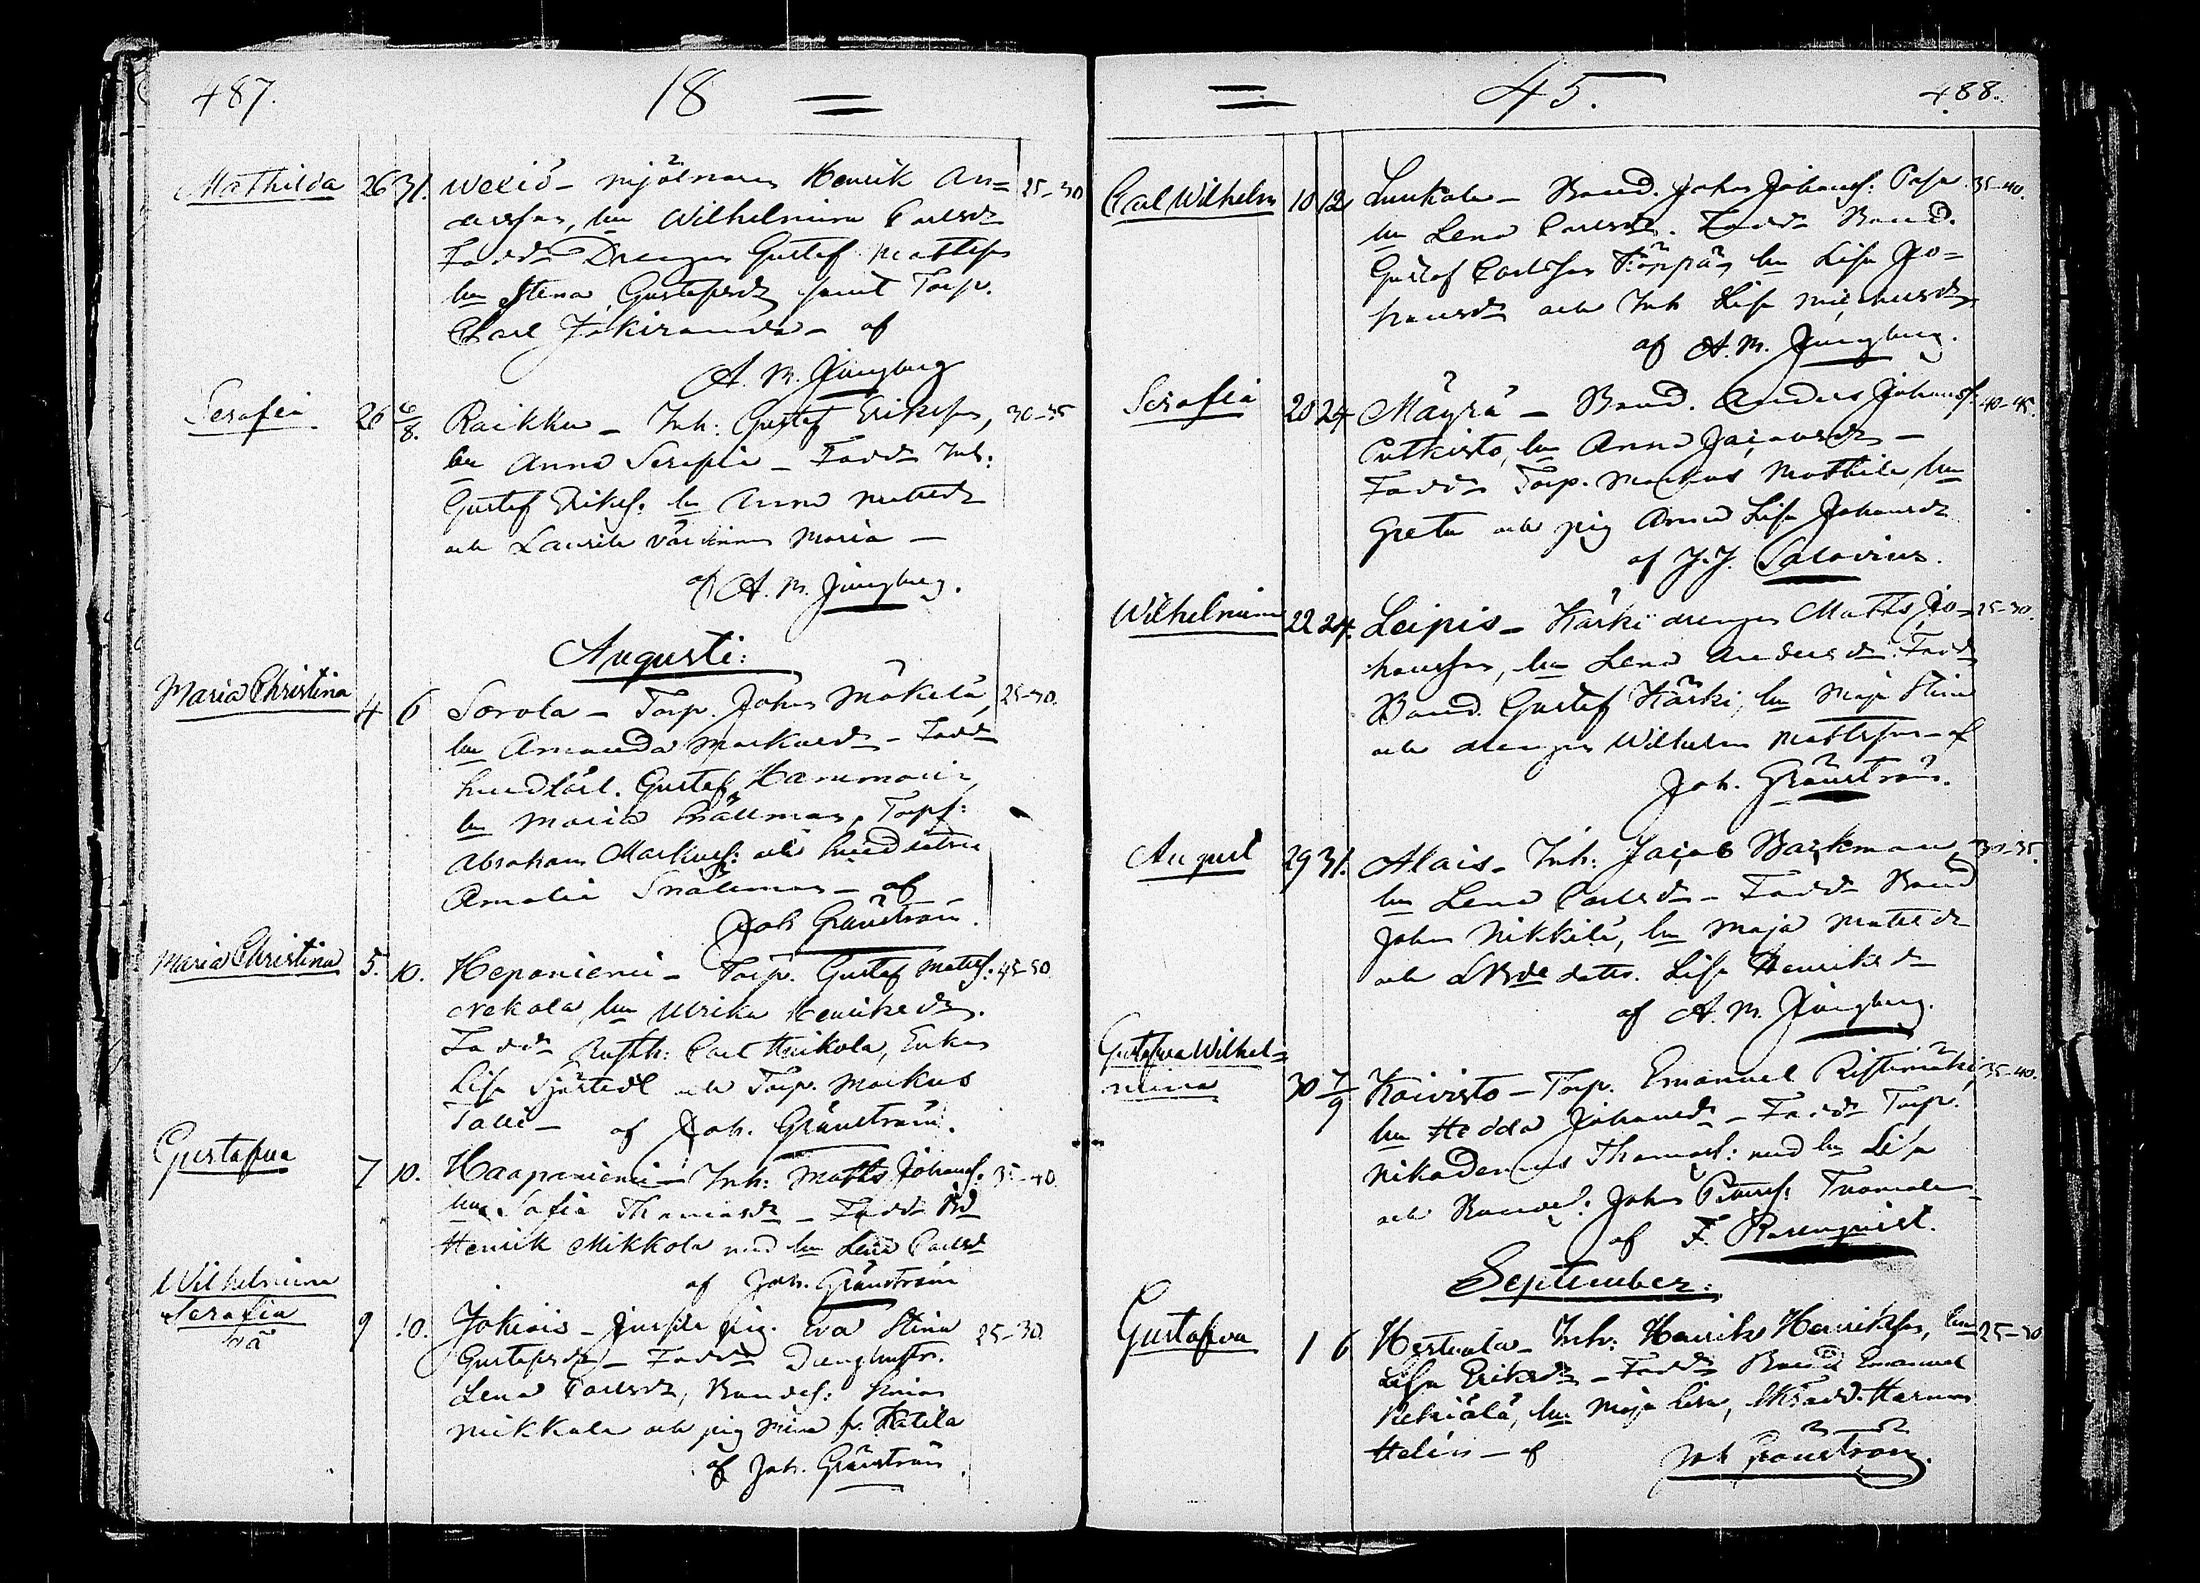 487. 18 =
Mathilda 26 31. Weviö - mjölnaren Henrik An= 25-30
dersson, hu Wilhelmina Carlsdr
Faddr Drengen Gustaf Mattsson
hu Stina Gustafsdr samt Torp.
Carl Jokiranda - af
A. M. Ljungberg
Serafia 26 6/8. Raikku - Inh: Gustaf Eriksson, 30-35
hu Anna Serafia - Faddr Inh:
Gustaf Eriks. hu Anna Mattsdr
och Laurila värdinnan Maria -
af A. M. Ljungberg.
Augusti:
Maria Christina 4 6 Sorola - Torp. Johan Mäkelä, 25-30.
hu Amanda Markusdr - Faddr
Gustaf
hu Maria Snällman, Torps:
Abraham Markuss: och
Amalia Snällman - af
Joh Granström.
Maria Christina 5. 10. Heponiemi - Torp. Gustaf Matts. 45-50
hu Ulrika Henriksdr.
Faddr Rusth: Carl Heikola, Enkan
Lisa Sjöstedt och Torp. Markus
Talli - af Joh. Granström.
Gustafva 7 10. Haapaniemi - Inh: Matts Johanss. 35-40.
hu Sofia Thomasdr - Faddr Bd
Henrik Mikkola med hu Lena Carlsdr
af Joh. Granström
Wilhelmina
Serafia
oä 9 10. Jokiois - pig. Eva Stina 25-30
Gustafsdr - Faddr Drenghustr.
Lena Carlsdr, Bondes:
Mikkola och pig Mina fr. Katila
af Joh. Granström
= 45. 488.
Carl Wilhelm 10 12 Lunkala - Bond. Johan Johanss: 35-40.
hu Lena Carlsdr. Faddr Bond.
Gustaf Carlsson Köppä, hu Lisa Jo=
hansdr och Inh Lisa Michelsdr
af A. M. Ljungberg.
Serafia 20 24 Mäyrä - Bond. Anders Johanss. 40-45.
Putkisto, hu Anna Jacobsdr -
Faddr Torp. Markus Mattila, hu
Greta och pig Anna Lisa Johansdr
af J. J. Salovius.
Wilhelmina 22 24. Leipis - Härki drengen Matts Jo- 25-30.
hansson, hu Lena Andersdr. Faddr
Bond. Gustaf Härki, hu Maja Stina
och drengen Wilhelm Mattsson - af
Joh. Granström.
August 29 31. Alais - Inh: Jacob Backman 30-35.
hu Lena Carlsdr - Faddr Bond
Johan Nikkilä, hu Maja Mattsdr
och dotter. Lisa Henriksdr
af A. M. Ljungberg.
Gustafva Wilhel=
mina 30 7/9 Koivisto - Torp. Emanuel Ristimäki, 35-40.
hu Hedda Johansdr - Faddr Torp.
Nikodemus Thomass: med hu Lisa
och Johan Tuomola -
af F. Rosenqvist.
September:
Gustafva 1 6 Hertuala - Inh: Henrik Henriksson, hu 25-30
Lisa Eriksdr - Faddr Bond Emanuel
hu Maja Lisa, Skrädd. Herman
Helin - af Joh Granström.